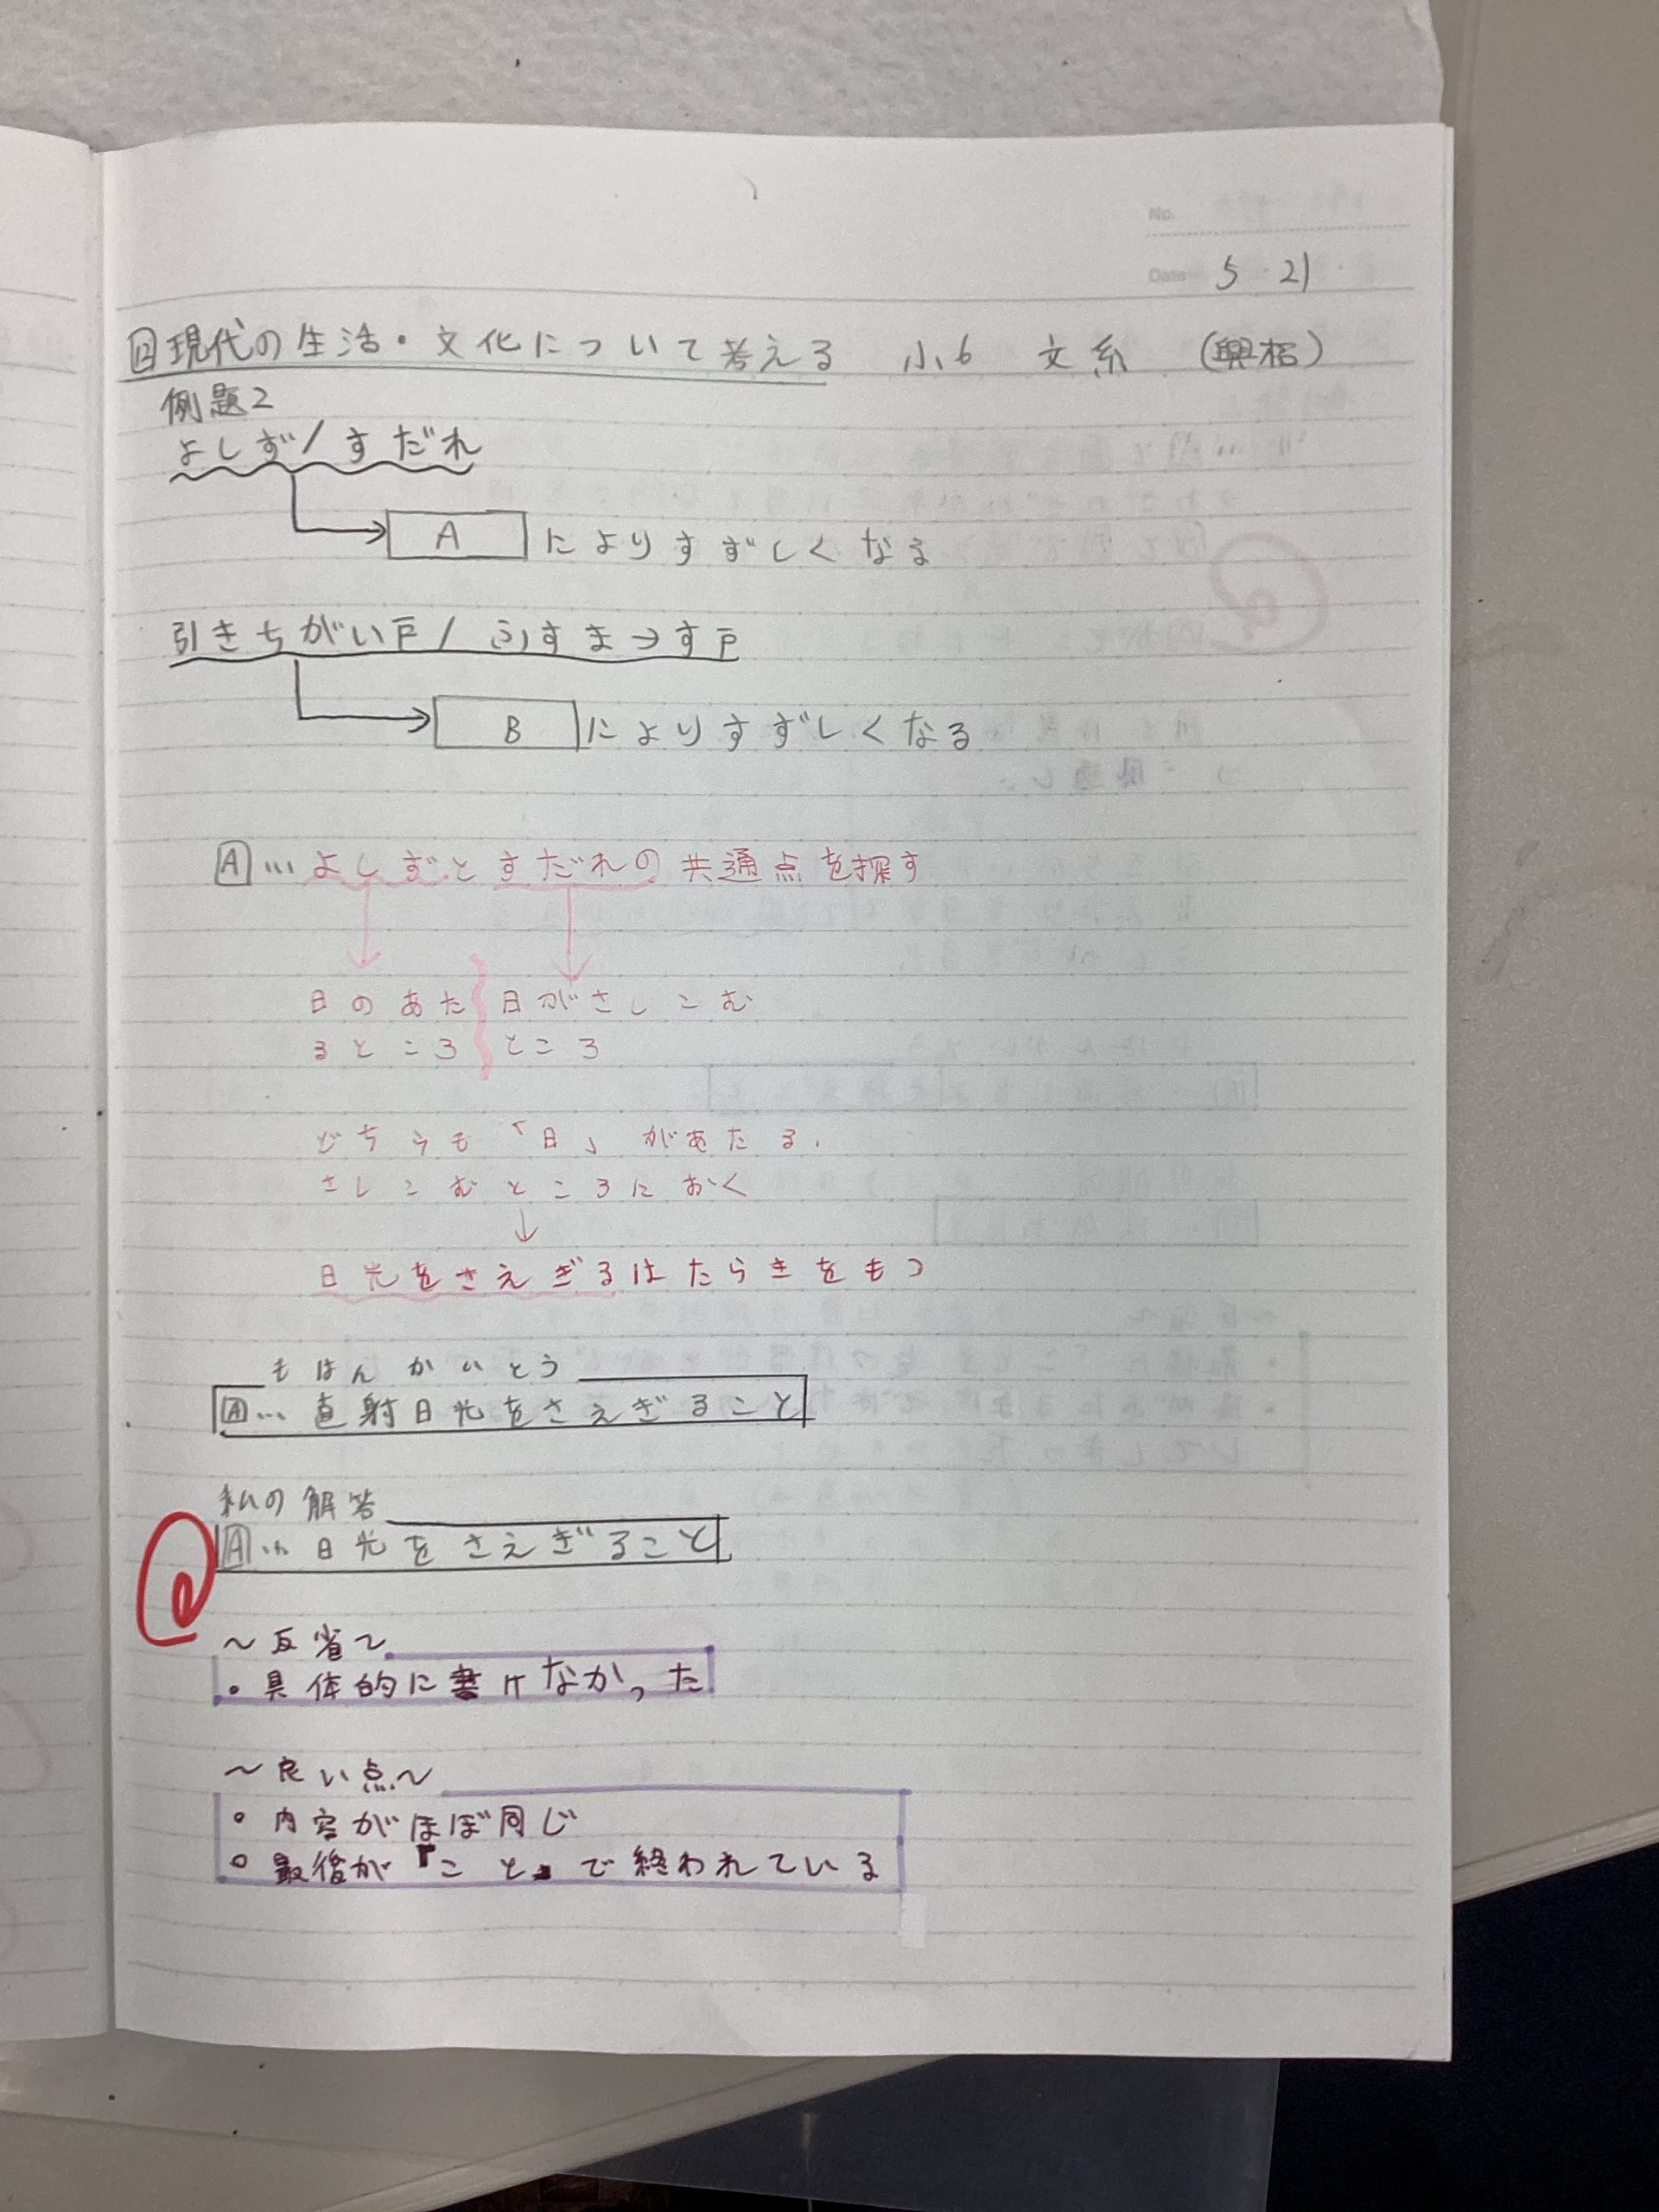 No.
Date 5・21
日現代の生活・文化について考える 小6 文系
例題2
よしず/すだれ
A によりすずしくなる
引きちがい戸/ふすま→す戸
B によりすずしくなる
A…よしずとすだれの共通点を探す
日のあた 日がさしこむ
るところ ところ
どちらも「日」があたる.
さしこむところにおく
↓
日光をさえぎるはたらきをもつ
もはんかいとう
A…直射日光をさえぎること
私の解答
A…日光をさえぎること
〜反省〜
・具体的に書けなかった
〜良い点〜
・内容がほぼ同じ
・最後が「こと」で終われている